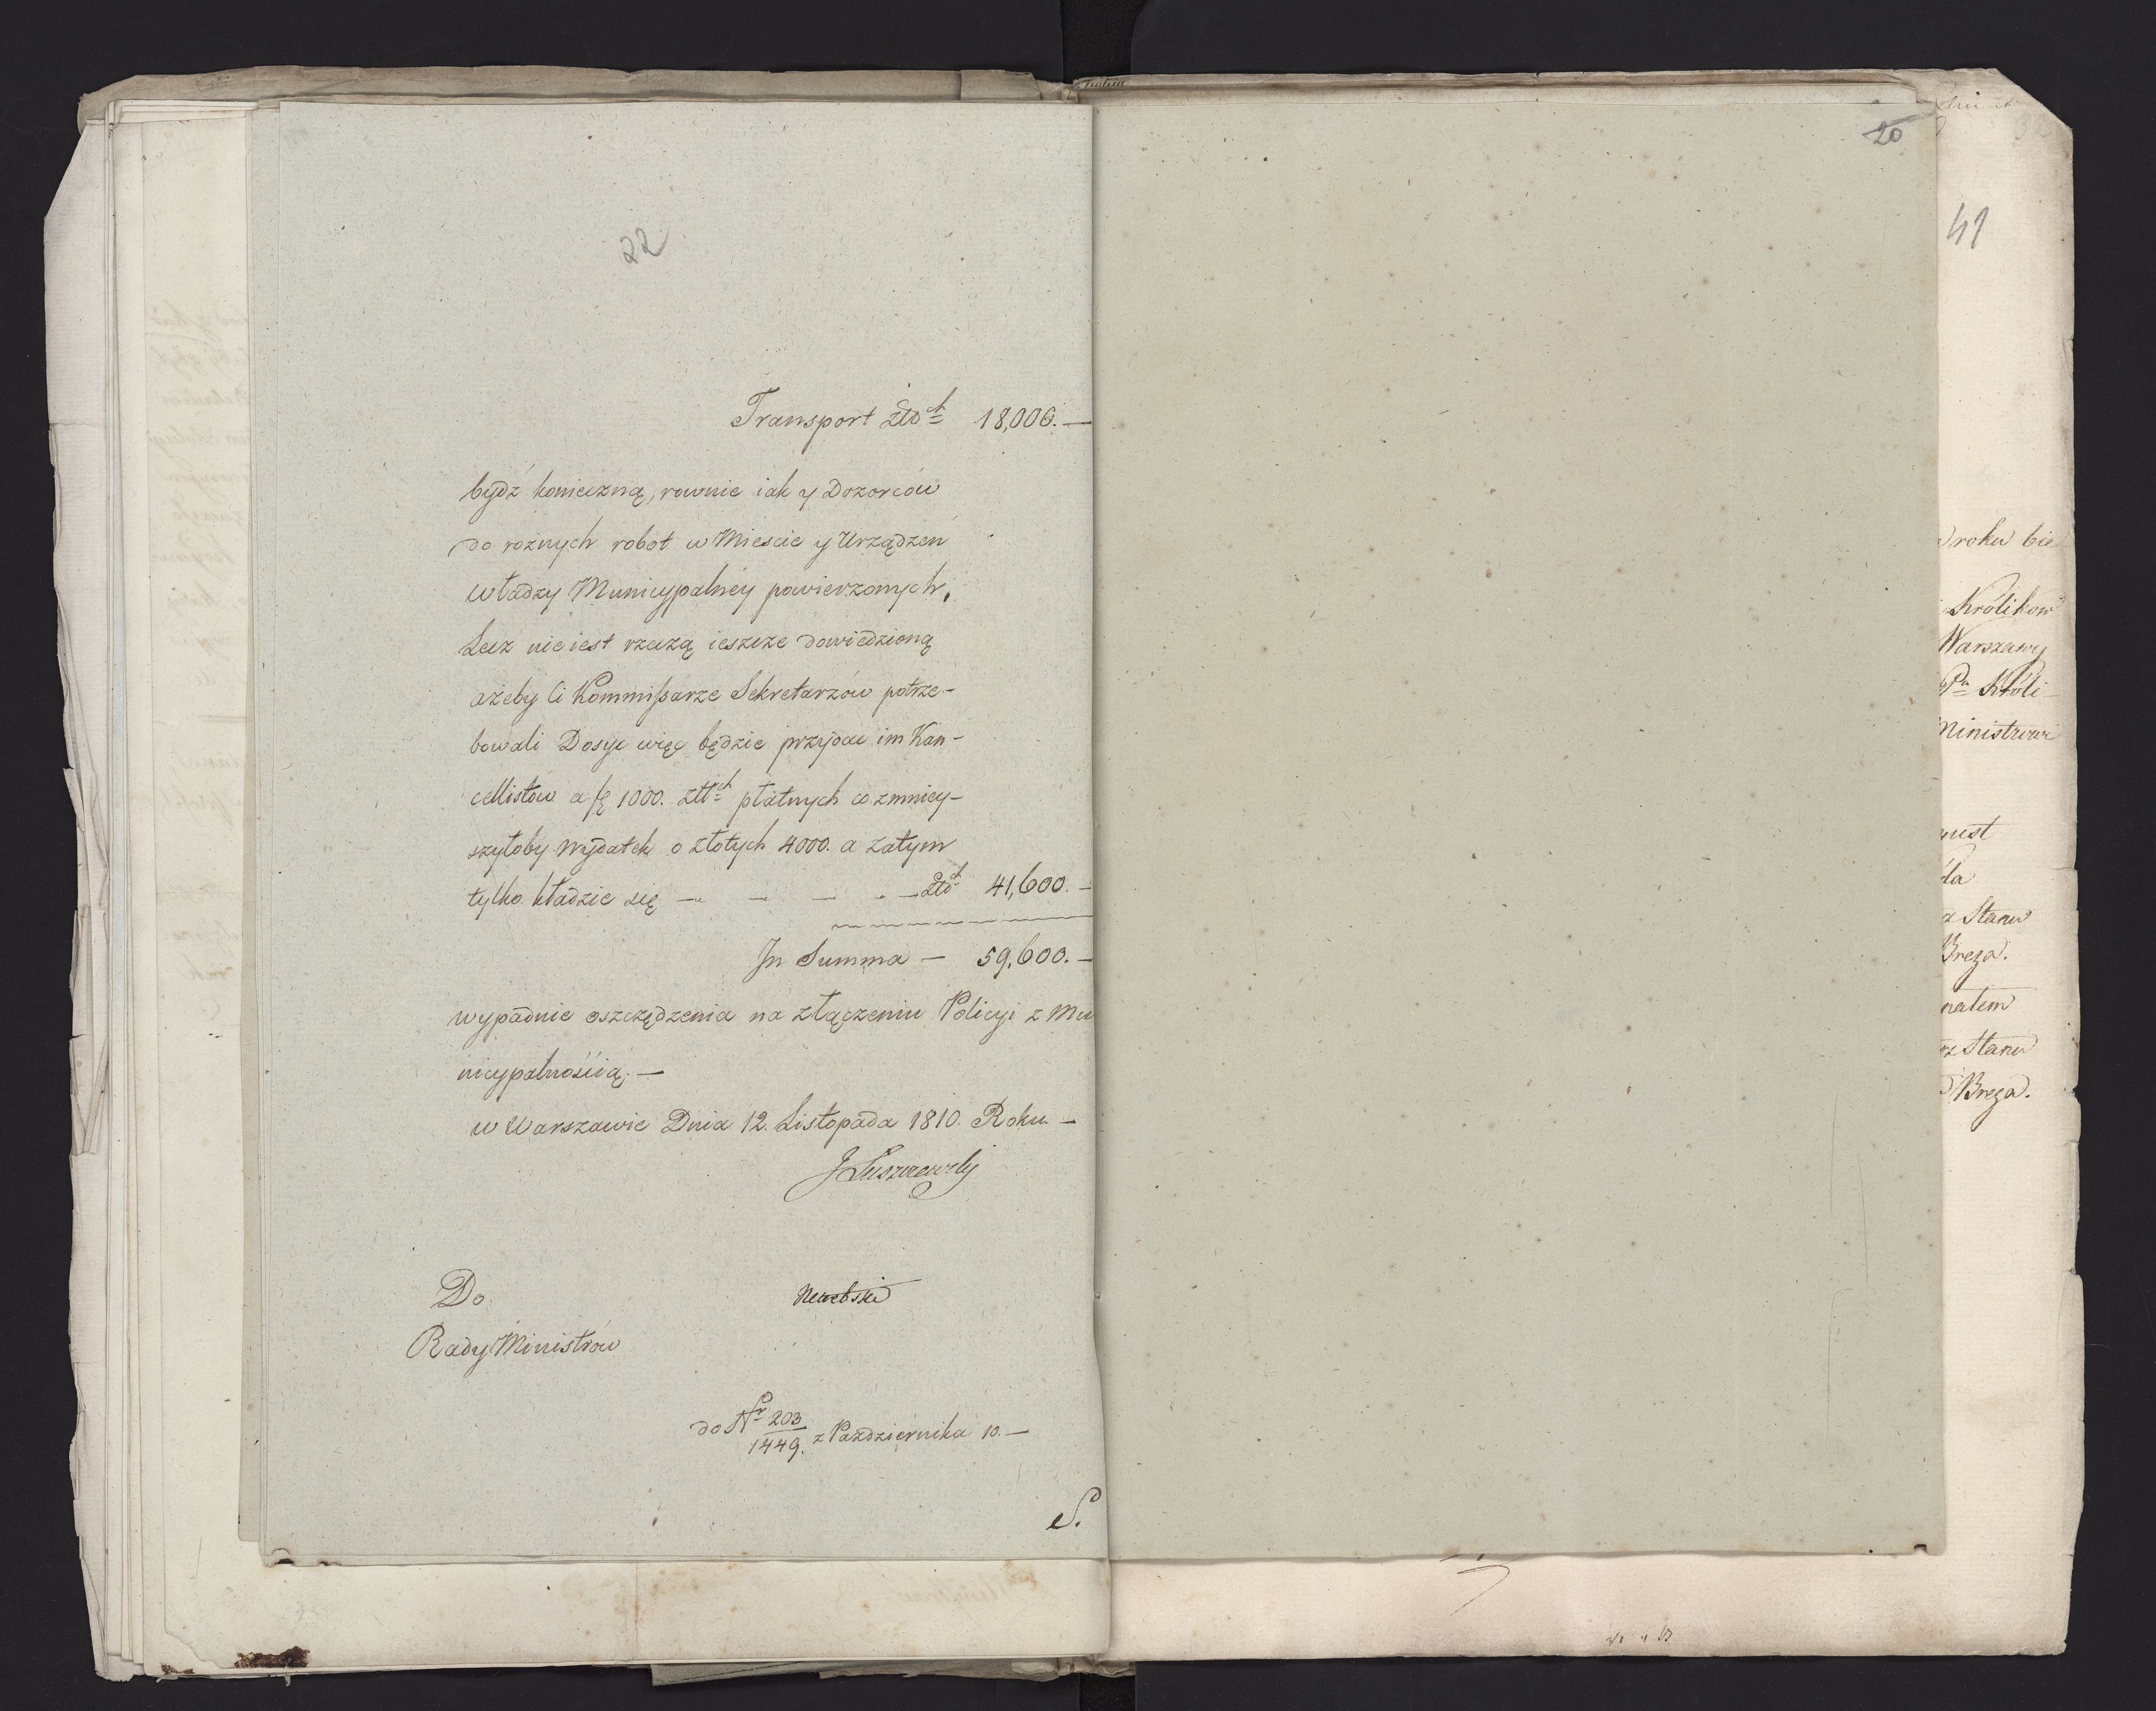 22
Transport Złt ch 18,000. —
bydź konieczną, rownie iak y Dozorców
do rożnych robot w Miescie y Urządzeń
władzy Municypalnéy powierzonych.
Lecz nie iest rzeczą ieszcze dowiedzioną
ażeby Ci Kommissarze Sekretarzów potrze-
bowali Dosyć więc będzie przydać im Kan-
cellistów a fl 1000. złt ch płatnych co zmniey-
szyłoby wydatek o złotych 4000. a zatym
tylko kładzie się — — — — Złt ch 41,600. —
In Summa — 59,600. —
wypadnie oszczędzenia na złączeniu Policyi z Mu
nicypalnością. —
w Warszawie Dnia 12. Listopada 1810. Roku. —
J Łuszczewski
Do
Rady Ministrów
do Nr 203/1449. z Października 10. —
S.
20
41
roku bie
Królikow
Warszawy
Pa Króli-
Ministrowi
z Stanu
Breza.
natem
rz Stanu
Breza.